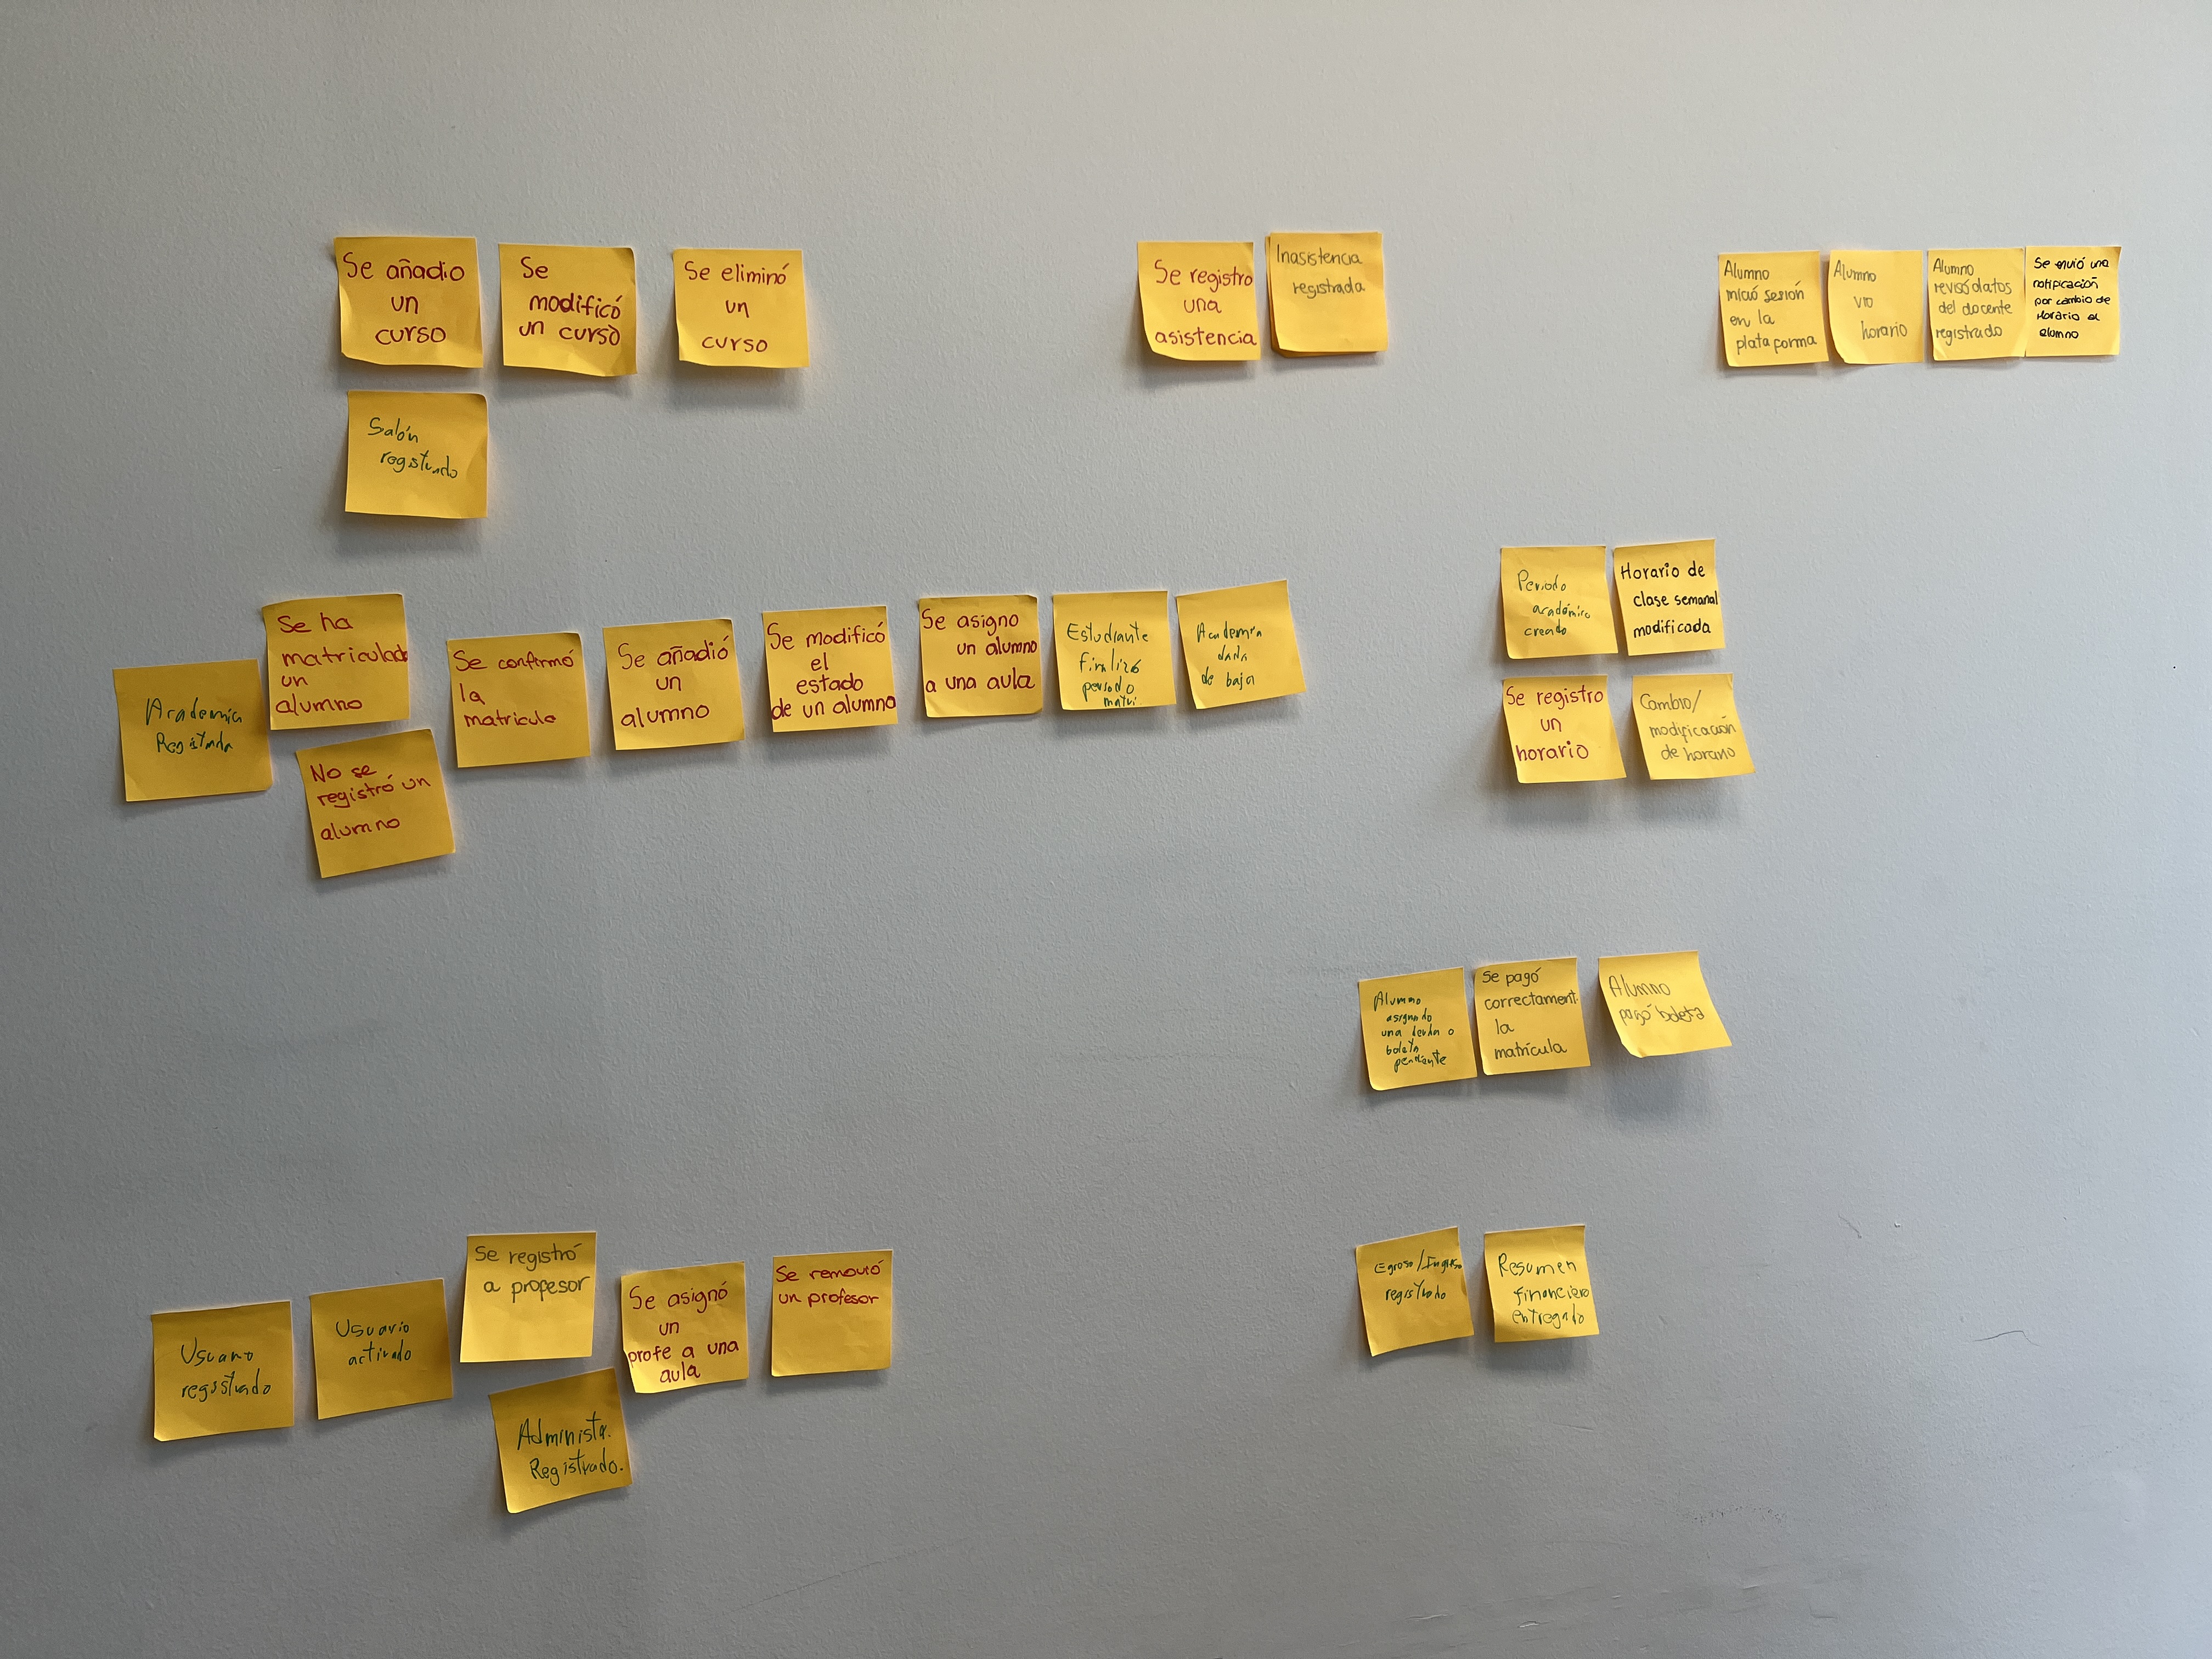 Se añadio
un
curso
Se
modificó
un curso
Se eliminó
un
curso
Salón
registrado
Se registro
una
asistencia
Inasistencia
registrada
Alumno
inició sesión
en la
plataforma
Alumno
vio
horario
Alumno
revisó datos
del docente
registrado
Se envió una
notificación
por cambio de
Horario al
alumno
Academia
Registrada
Se ha
matriculado
un
alumno
No se
registró un
alumno
Se confirmó
la
matricula
Se añadió
un
alumno
Se modificó
el
estado
de un alumno
Se asigno
un alumno
a una aula
Estudiante
finalizó
periodo
matri.
Academia
dada
de baja
Periodo
académico
creado
Horario de
clase semanal
modificada
Se registro
un
horario
Cambio/
modificación
de horario
Alumno
asignado
una deuda o
boleta
pendiente
Se pagó
correctament.
la
matrícula
Alumno
pagó boleta
Usuario
registrado
Usuario
activado
Se registró
a profesor
Administr.
Registrado.
Se asignó
un
profe a una
aula
Se removió
un profesor
Egreso/Ingreso
registrado
Resumen
financiero
entregado